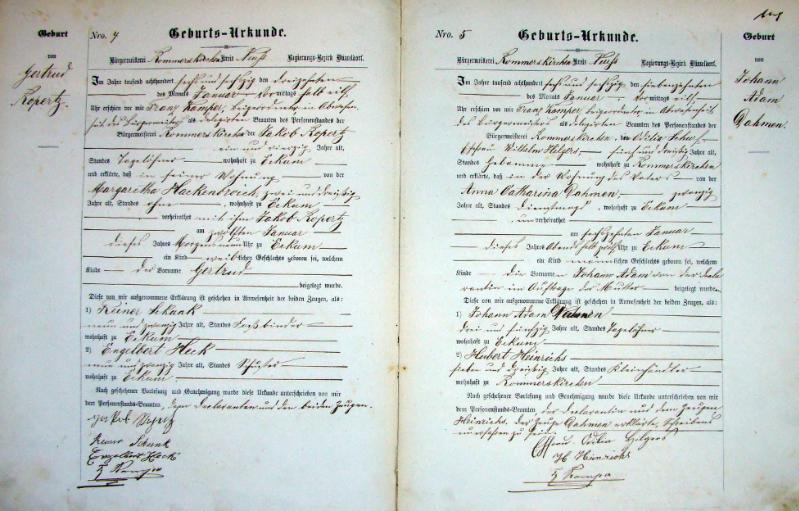 Geburt
von
Gertrud
Kopertz.
Nro. 4
Geburts-Urkunde.
Bürgermeisterei Rommerskirchen Kreis Neuß Regierungs-Bezirk Düsseldorf.
Im Jahre tausend achthundert sechs und sechzig, den dreizehnten
des Monats Januar Vormittags halb elf
Uhr erschien vor mir Franz Kamper, Beigeordneter in Abwesen-
heit des Bürgermeisters als delegirten Beamten des Personenstandes der
Bürgermeisterei Rommerskirchen der Jakob Kopertz
ein und vierzig Jahre alt,
Standes Tagelöhner wohnhaft zu Eckum
und erklärte, daß in seiner Wohnung von der
Margaretha Hackenbroich, zwei und dreißig
Jahre alt, Standes ohne, wohnhaft zu Eckum
verheirathet mit ihm Jakob Kopertz
am zwölften Januar
dieses Jahres Morgens Uhr zu Eckum
ein Kind weiblichen Geschlechts geboren sei, welchem
Kinde der Vorname Gertrud
beigelegt wurde.
Diese von mir aufgenommene Erklärung ist geschehen in Anwesenheit der beiden Zeugen, als:
1) Reiner Schunk
neun und zwanzig Jahre alt, Standes Faßbinder
wohnhaft zu Eckum
2) Engelbert Heck
neun und zwanzig Jahre alt, Standes Schuster
wohnhaft zu Eckum
Nach geschehener Vorlesung und Genehmigung wurde diese Urkunde unterschrieben von mir
dem Personenstands-Beamten, dem Declaranten und den beiden Zeugen.
Jakob Kopertz
Reiner Schunk
Engelbert Heck
F Kamper
Nro. 5
Geburts-Urkunde.
Bürgermeisterei Rommerskirchen Kreis Neuß Regierungs-Bezirk Düsseldorf.
Im Jahre tausend achthundert sechs und sechzig, den siebenzehnten
des Monats Januar Vormittags elf
Uhr erschien vor mir Franz Kamper, Beigeordneter in Abwesenheit
des Bürgermeisters als delegirten Beamten des Personenstandes der
Bürgermeisterei Rommerskirchen, die Odilia
Ehefrau Wilhelm Hilgers, fünf und dreißig Jahre alt,
Standes Hebamme wohnhaft zu Rommerskirchen
und erklärte, daß in der Wohnung des Vaters von der
Anna Catharina Dahmen, zwanzig
Jahre alt, Standes Dienstmagd, wohnhaft zu Eckum
unverheirathet
am sechszehnten Januar
dieses Jahres Abends halb Uhr zu Eckum
ein Kind männlichen Geschlechts geboren sei, welchem
Kinde die Vornamen Johann Adam von der Decla-
rantin im Auftrage der Mutter beigelegt wurden.
Diese von mir aufgenommene Erklärung ist geschehen in Anwesenheit der beiden Zeugen, als:
1) Johann Adam Dahmen
drei und fünfzig Jahre alt, Standes Tagelöhner
wohnhaft zu Eckum
2) Hubert Heinrichs
sieben und dreißig Jahre alt, Standes Kleinhändler
wohnhaft zu Rommerskirchen
Nach geschehener Vorlesung und Genehmigung wurde diese Urkunde unterschrieben von mir
dem Personenstands-Beamten, der Declarantin und dem Zeugen
Heinrichs, der Zeuge Dahmen erklärte, Schreibens
unerfahren zu sein.
Ehefrau Hilgers
H Heinrichs
F Kamper
Geburt
von
Johann
Adam
Dahmen.